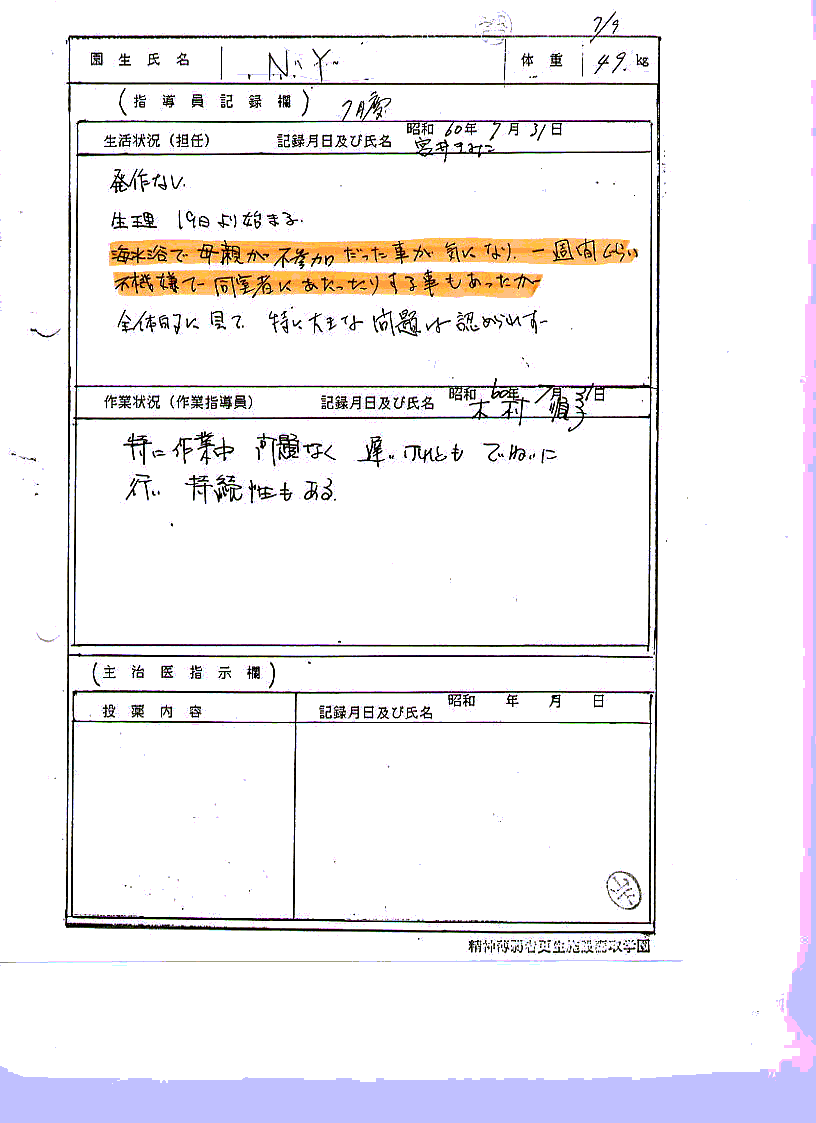 7/9
園生氏名 N.Y. 体重 49. kg
(指導員記録欄) 7月度
生活状況(担任) 記録月日及び氏名 昭和60年7月31日
宮井すみこ
発作ない.
生理 19日より始まる.
海水浴で母親が不参加だった事が気になり、一週間くらい
不機嫌で同室者にあたったりする事もあったが
全体的に見て 特に大きな問題は認められず
作業状況(作業指導員) 記録月日及び氏名 昭和60年7月31日
木村順子
特に作業中 問題なく 遅いけれども ていねいに
行い 持続性もある.
(主治医指示欄)
投薬内容 記録月日及び氏名 昭和 年 月 日
精神薄弱者更生施設 学園